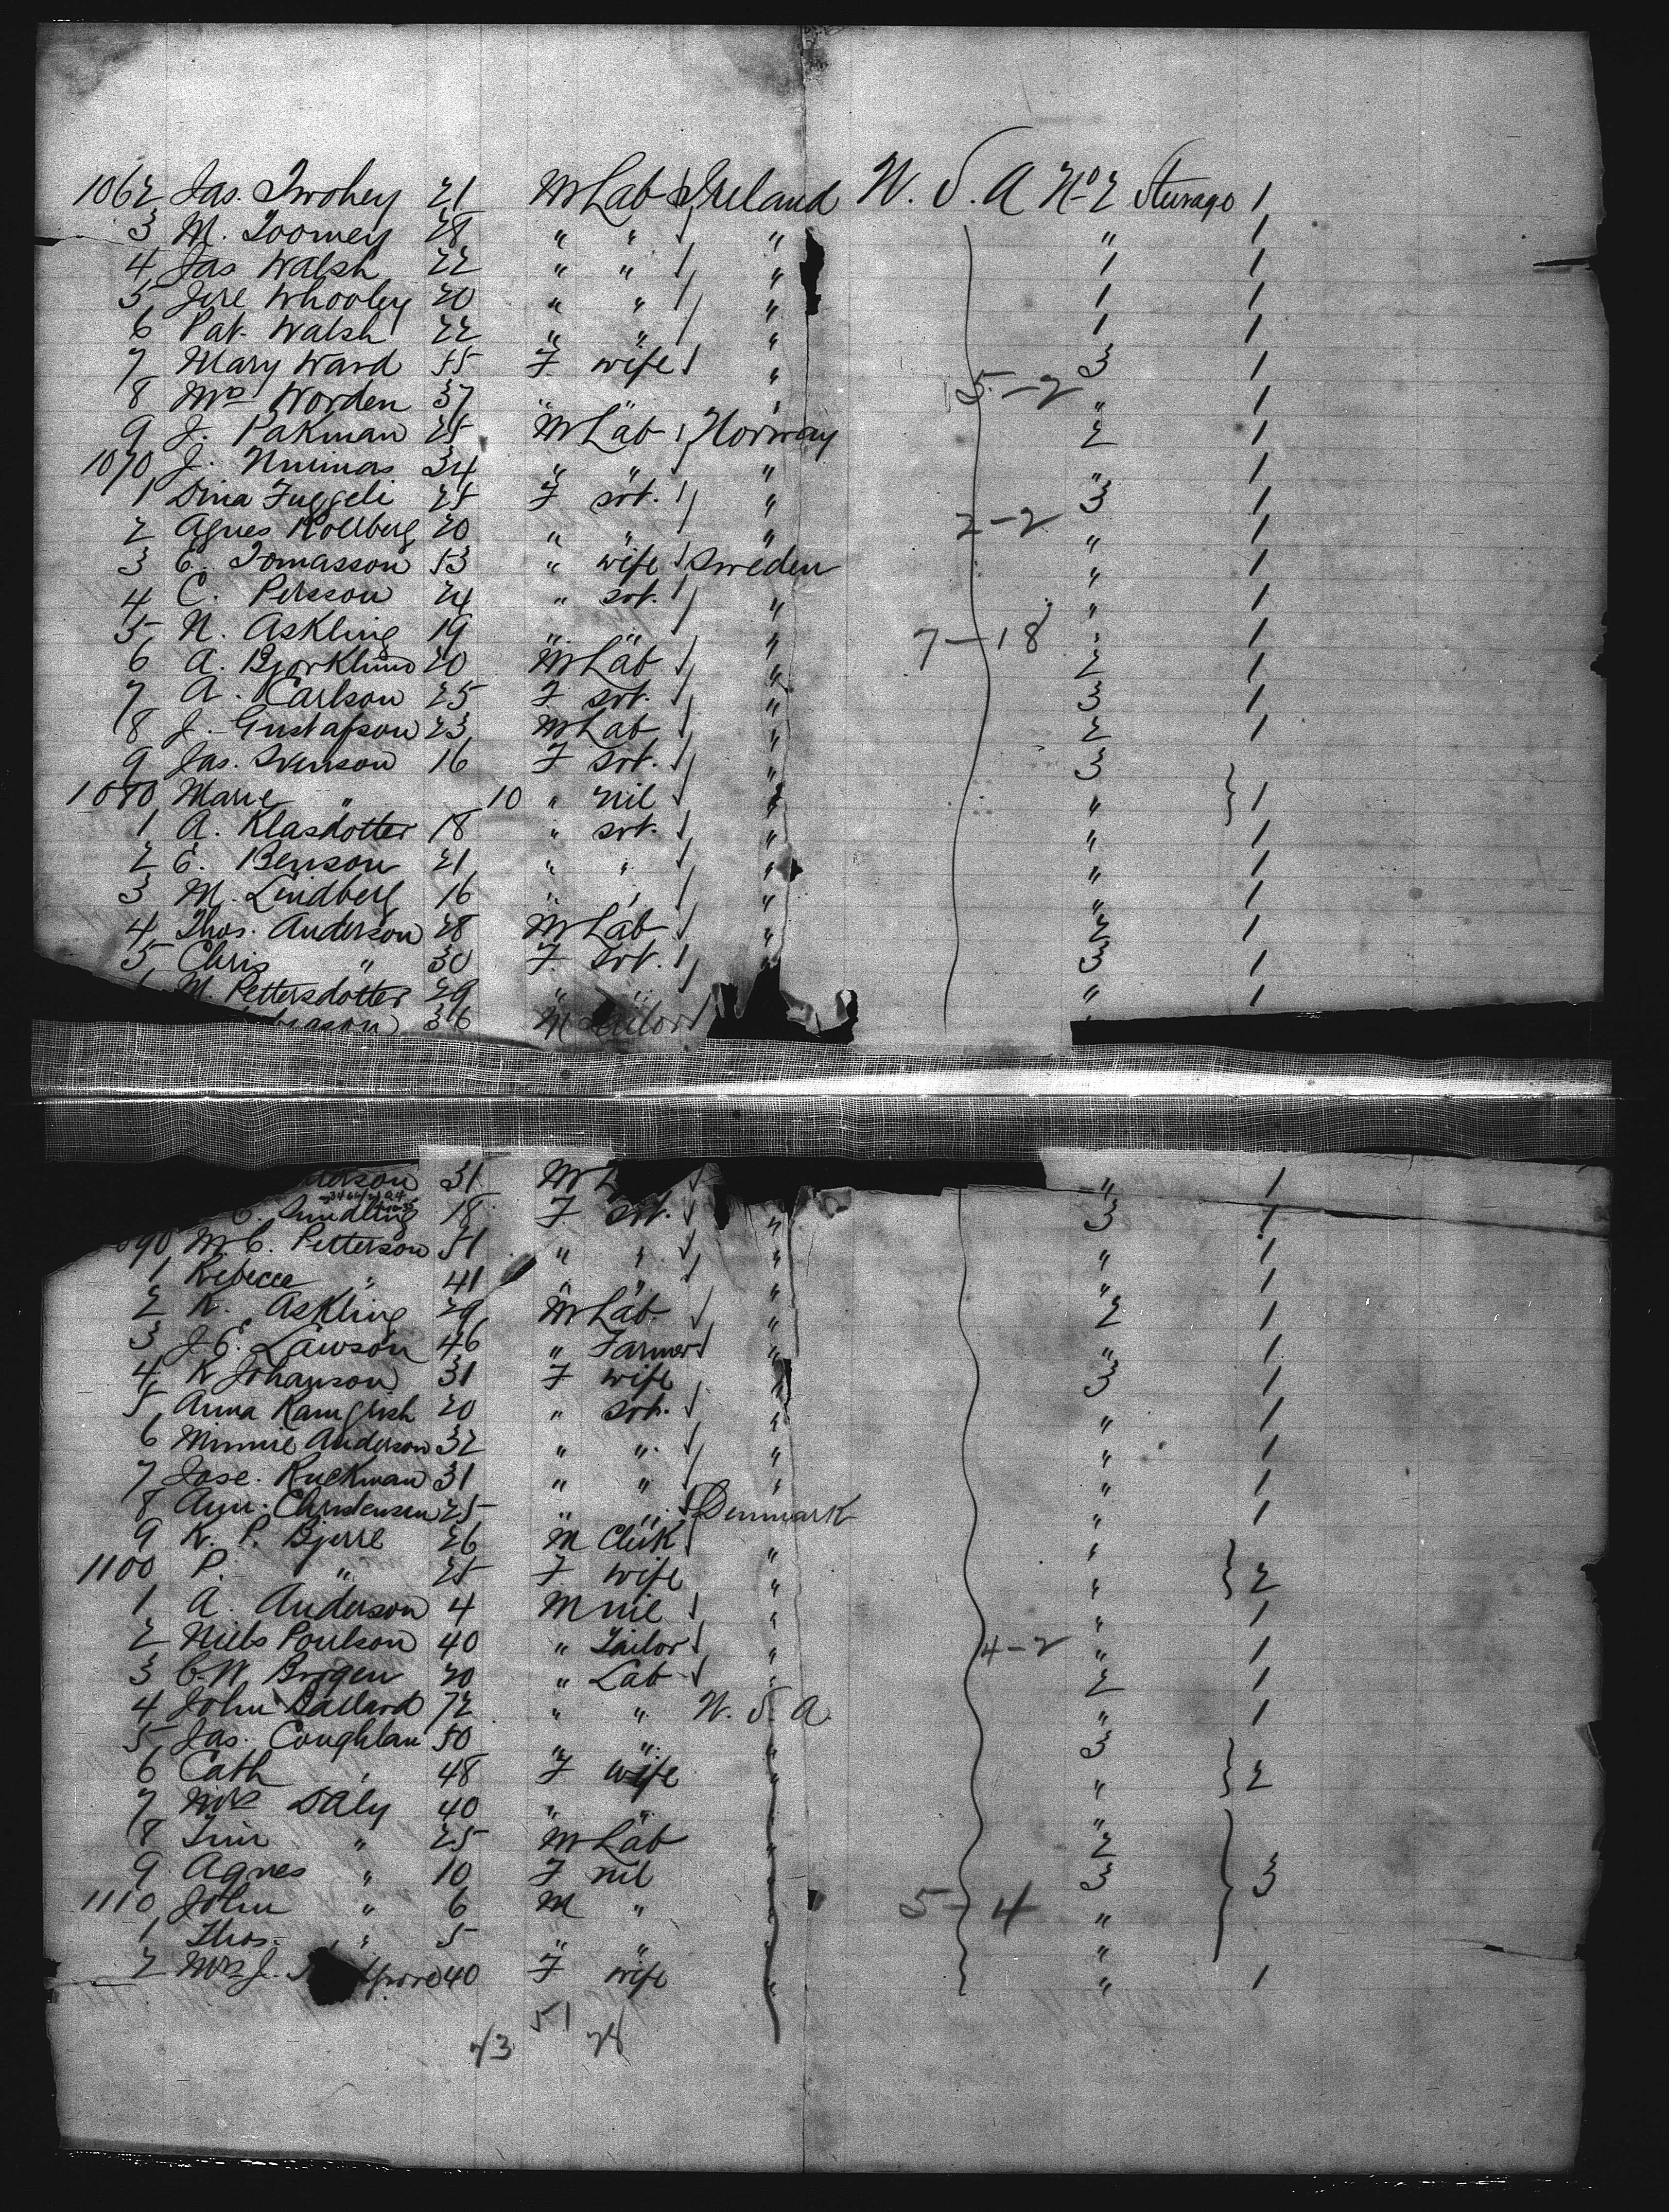 1062 Jas. Twohey 21 M Lab Ireland U. S. A No 2 Steerage 1
3 M. Toomey 28 " " " " 1
4 Jas Walsh 22 " " " 1 1
5 Jere Whooley 20 " " " 1 1
6 Pat. Walsh 22 " " " 1 1
7 Mary Ward 55 F wife " 3 1
8 Mrs Worden 37 " " " 5-2 " 1
9 J. Pakman 25 M Lab Norway 2 1
1070 J. 34 " " " " 1
1 Dina Fuggeli 25 F svt. " 3 1
2 Agnes Kollberg 20 " " " 2-2 " 1
3 E. Tomasson 53 " wife Sweden " 1
4 C. Persson 24 " svt. " " 1
5 N. Askling 19 " " " 7-18 " 1
6 A. Bjorklund 20 M Lab " 2 1
7 A. Carlson 25 F svt. " 3 1
8 J. Gustafson 23 M Lab " 2 1
9 Jas. Svenson 16 F svt. " 3
1080 Marie " 10 " nil " " } 1
1 A. Klasdotter 18 " svt. " " 1
2 E. Benson 21 " " " " 1
3 M. Lindberg 16 " " " " 1
4 Thos. Anderson 28 M Lab " 2 1
5 Chris " 30 F svt. " 3 1
M. Pettersdotter 29 " " " 1
36 M Tailor "
31 M " 1
18 F svt. " 3 1
090 M. C. Petterson 51 " " " " 1
1 Rebecca " 41 " " " " 1
2 K. Askling 29 M Lab " 2 1
3 J. E. Lawson 46 " Farmer " " 1
4 K Johanson 31 F wife " 3 1
5 Anna 20 " svt. " " 1
6 Minnie Anderson 32 " " " " 1
7 Jose. Ruckman 31 " " " " 1
8 Ann. Christensen 25 " " Denmark " 1
9 K. P. Bjerre 26 M Clerk " "
1100 P. " 25 F wife " " } 2
1 A. Anderson 4 M nil " " 1
2 Niels Poulson 40 " Tailor " 4-2 " 1
3 C. W. Brogen 20 " Lab " 2 1
4 John Ballard 72 " " U. S. A " 1
5 Jas. Coughlan 50 " " " 3
6 Cath " 48 F wife " " } 2
7 Mrs Daly 40 " " " "
8 Tim " 25 M Lab " 2
9 Agnes " 10 F nil " 3 } 3
1110 John " 6 M " " 5-4 "
1 Thos. " 5 " " " "
2 Mrs J. 40 F wife " " 1
51
23 28